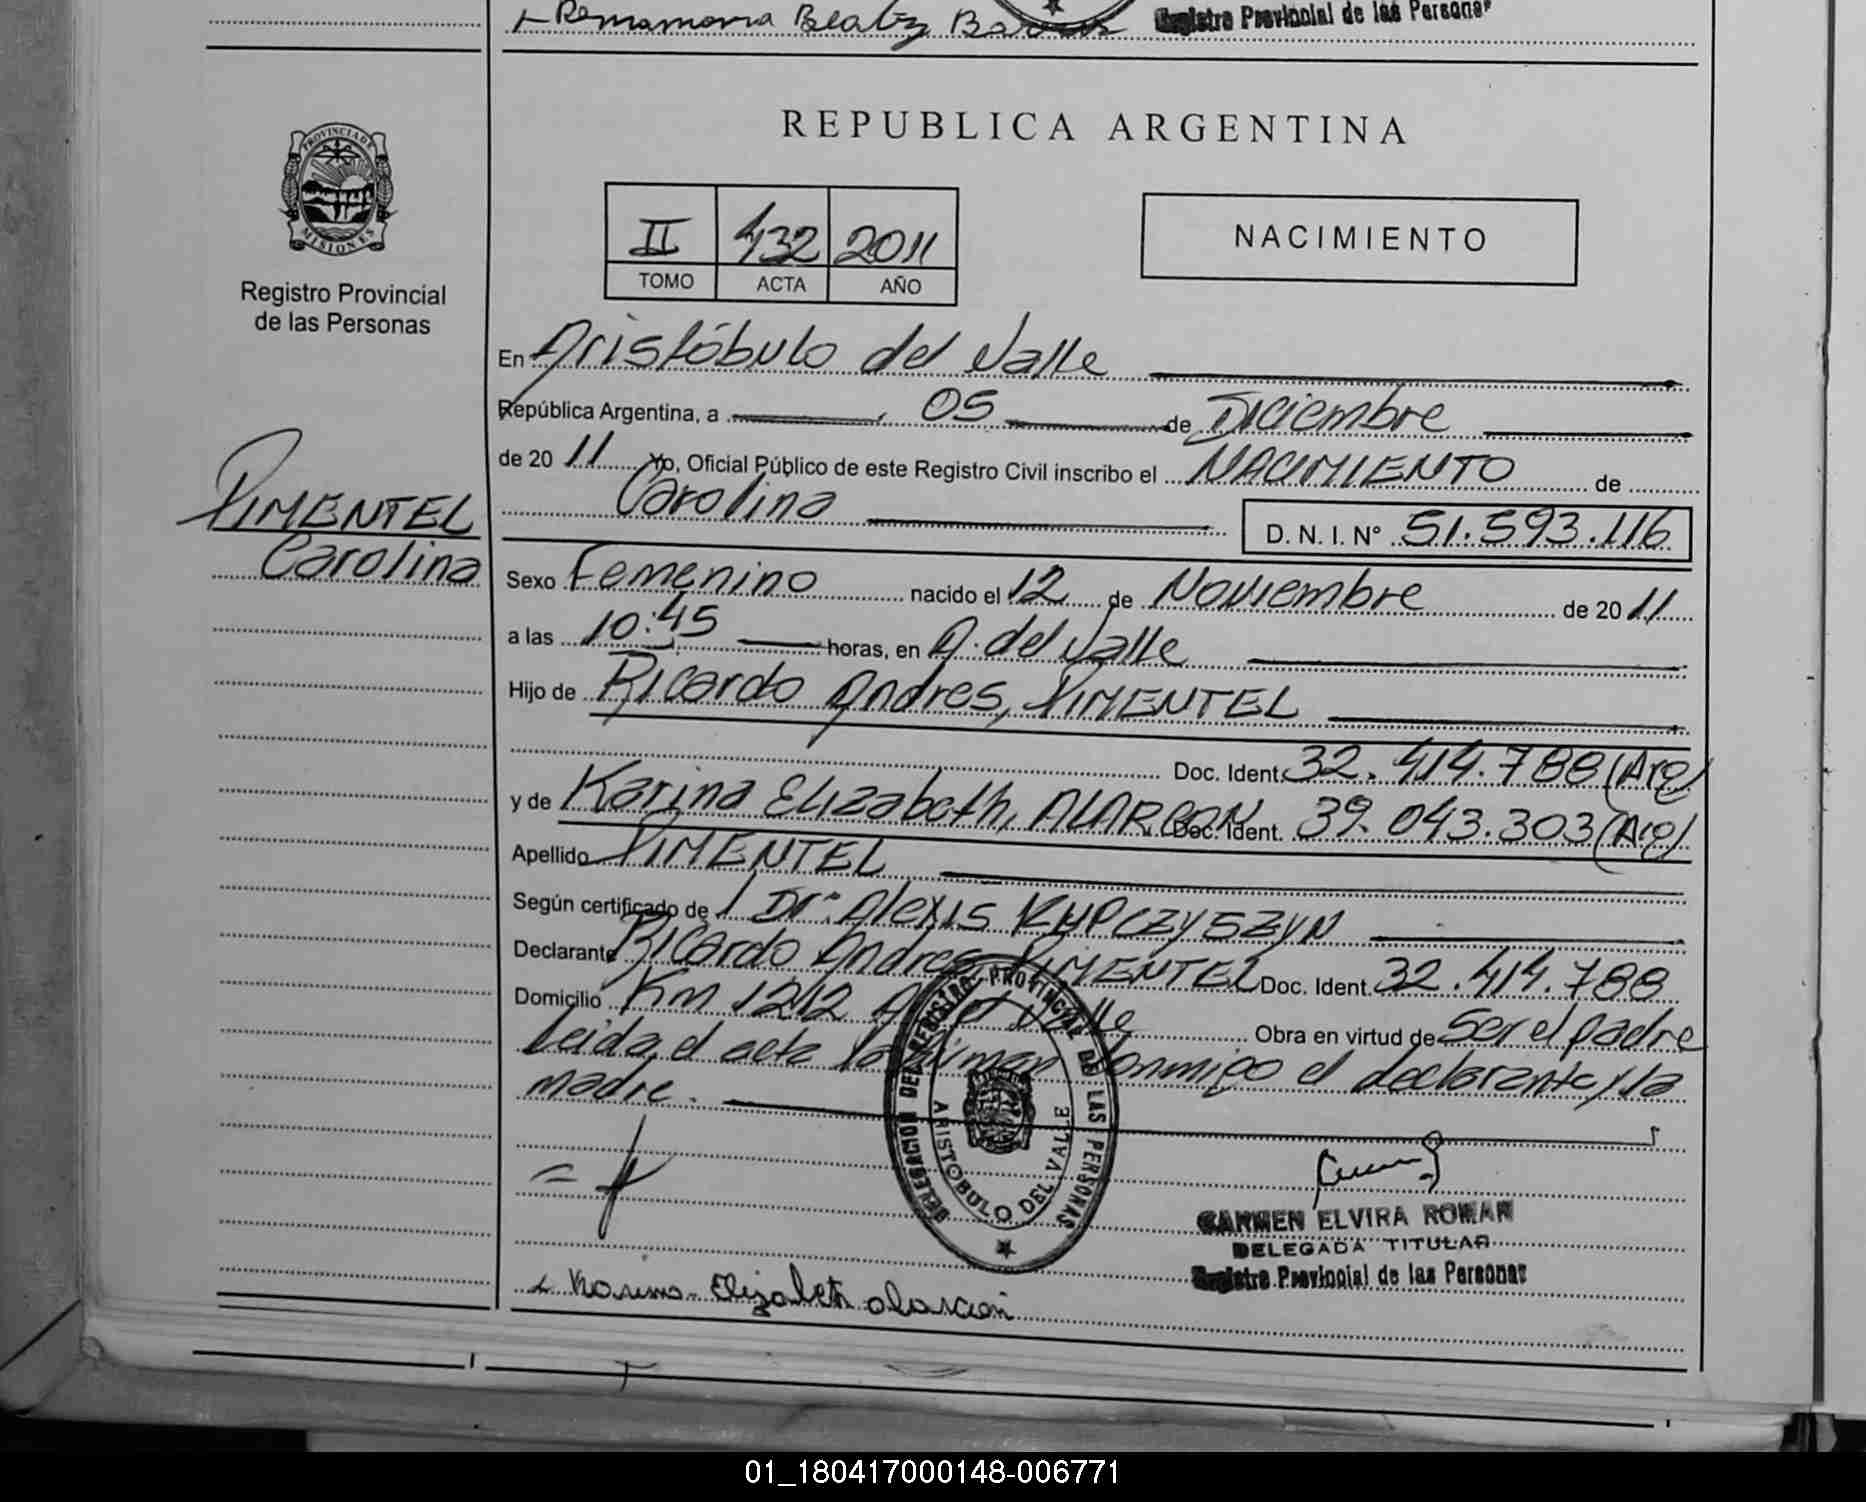 Beatriz
Registro Provincial de las Personas
REPUBLICA ARGENTINA
PROVINCIA DE MISIONES
Registro Provincial
de las Personas
II 432 2011
TOMO ACTA AÑO
NACIMIENTO
En Aristóbulo del Valle
República Argentina, a 05 de Diciembre
de 20 11 Yo, Oficial Público de este Registro Civil inscribo el NACIMIENTO de
Carolina D. N. I. Nº 51.593.116
PIMENTEL
Carolina
Sexo Femenino nacido el 12 de Noviembre de 20 11
a las 10:45 horas, en A. del Valle
Hijo de Ricardo Andres, PIMENTEL
Doc. Ident. 32.414.788 (Arg)
y de Karina Elizabeth, ALARCON Doc. Ident. 39.043.303 (Arg)
Apellido PIMENTEL
Según certificado de / Dr. Alexis KUPCZYSZYN
Declarante Ricardo Andres, PIMENTEL Doc. Ident. 32.414.788
Domicilio Km 1212 A. del Valle Obra en virtud de Ser el padre
Leida el acta la firman conmigo el declarante y la
madre.
DELEGACION DEL REGISTRO PROVINCIAL DE LAS PERSONAS
ARISTOBULO DEL VALLE
CARMEN ELVIRA ROMAN
DELEGADA TITULAR
Registro Provincial de las Personas
Karina Elizabeth alarcon
01_180417000148-006771